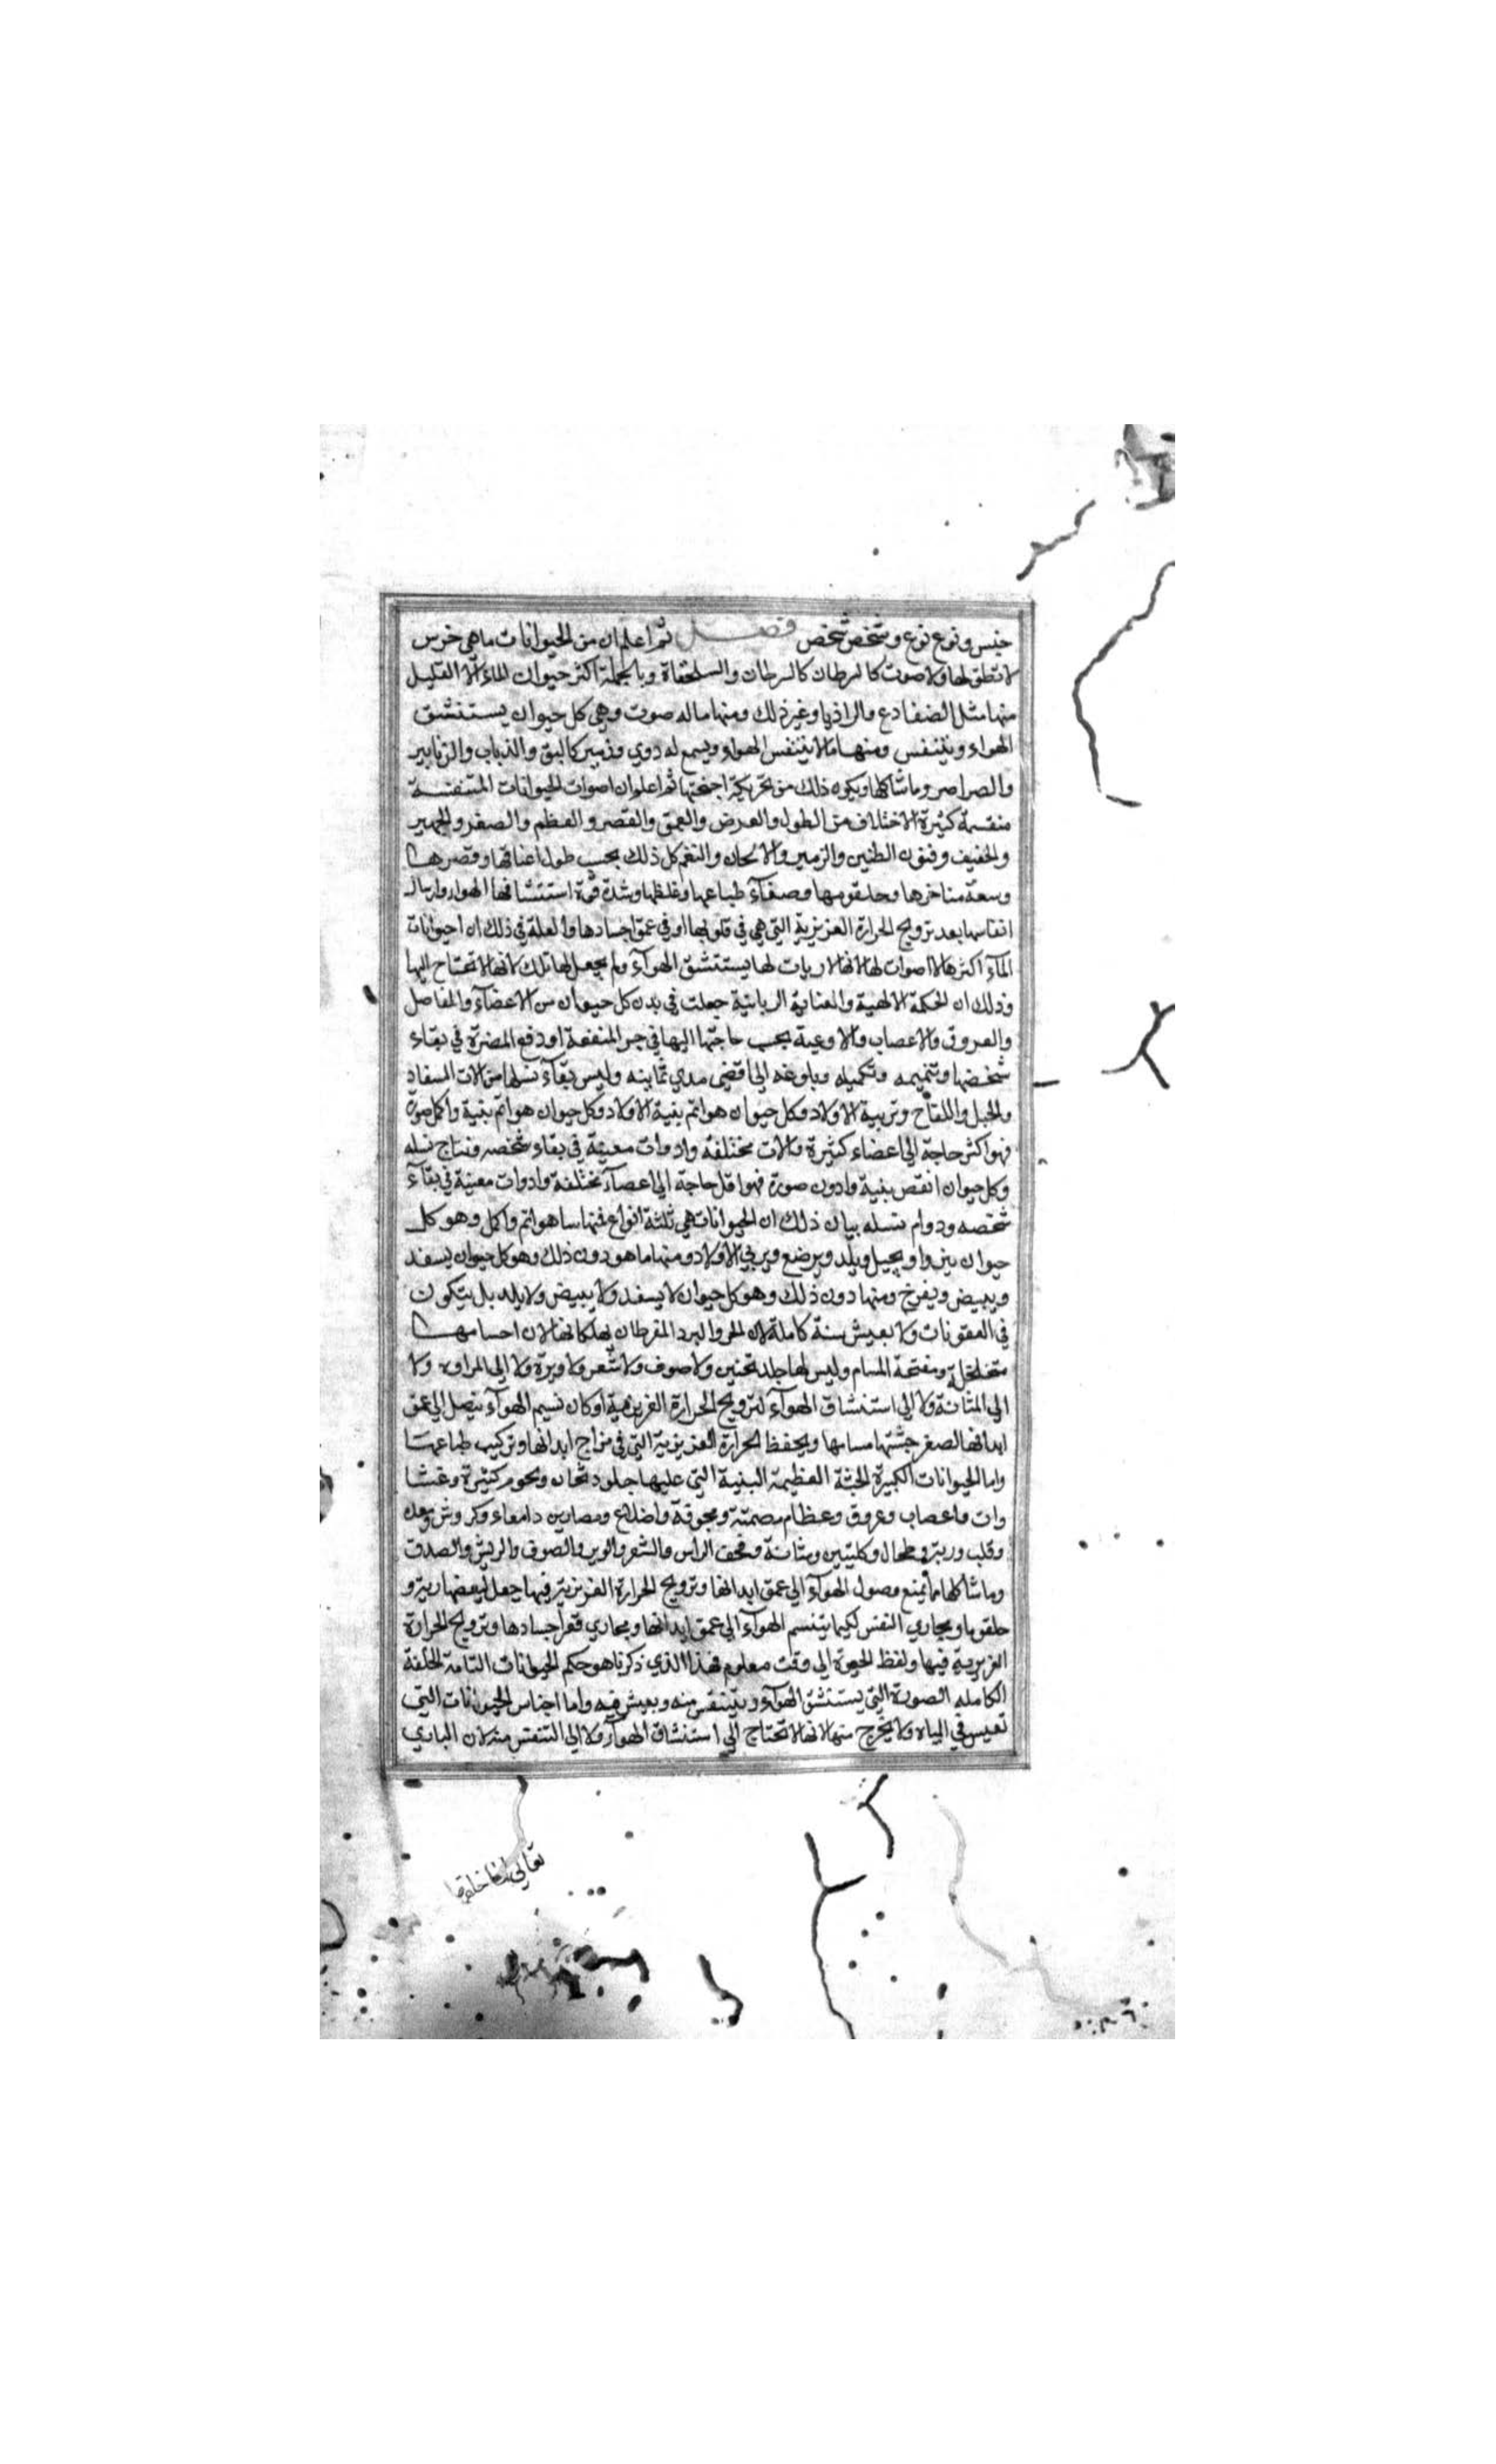 جنس ونوع نوع وشخص شخص فصل ثم اعلم ان من الحيوانات ما هي خرس
لا تنطق لها ولا صوت كالسرطان كالسرطان والسلحفاة وبالجملة اكثر حيوان الماء الا القليل
منها مثل الضفادع والراذيا وغير ذلك ومنها ماله صوت وهي كل حيوان يستنشق
الهواء ويتنفس ومنها ما لا يتنفس الهواء ويسمع له دوي وزمير كالبق والذباب والزنابير
والصراصر وما شاكلها ويكون ذلك من تحريكة اجنحتها ثم اعلم ان اصوات الحيوانات المتنفسة
منقسمة كثيرة الاختلاف من الطول والعرض والعمق والقصر والعظم والصغر والجهير
والخفيف وفنون الطنين والزمير والالحان والنغم كل ذلك بحسب طول اعناقها وقصرها
وسعة مناخرها وحلقومها وصفآء طباعها وغلظها وشدة قوة استنشاقها الهواء وارسال
انفاسها بعد ترويح الحرارة الغريزية التي هي في قلوبها او في عمق اجسادها والعلة في ذلك ان احيوانات
المآء اكثرها لا اصوات لها لانها لا ريات لها يستنشق الهوآء ولم يجعل لها تلك لانها لا تحتاج اليها
وذلك ان الحكمة الالهية والعناية الربانية جعلت في بدن كل حيوان من الاعضآء والمفاصل
والعروق والاعصاب والاوعية بحسب حاجتها اليها في جر المنفعة او دفع المضرة في بقاء
شخصها وتتميمه وتكميله وبلوغه الى اقضى مدي ثماينه وليس بقآء نسلها من الات السفاد
والحبل واللقاح وتربية الاولاد وكل حيوان هو اتم بنية الاولاد وكل حيوان هو اتم بنية واكمل صورة
فهو اكثر حاجة الى اعضاء كثيرة والات مختلفة وادوات معينة في بقاء شخصه ونتاج نسله
وكل حيوان انقص بنية وادون صورة فهو اقل حاجة الى اعضآء مختلفة وادوات معينة في بقآء
شخصه ودوام نسله بيان ذلك ان الحيوانات هي ثلثة انواع فمنها ما هو اتم واكمل وهو كل
حيوان ينزوا ويحبل ويلد ويرضع ويربي الاولاد ومنها ما هو دون ذلك وهو كل حيوان يسفد
ويبيض ويفرخ ومنها دون ذلك وهو كل حيوان لا يسفد ولا يبيض ولا يلد بل يتكون
في العفونات ولا يعيش سنة كاملة لان الحر والبرد المفرطان يهلكانها لان اجسامها
متخلخلة ومفتحة المسام وليس لها جلد ثخين ولا صوف ولا شعر ولا وبرة ولا الى المراره ولا
الى المثانة ولا الى استنشاق الهوآء لترويح الحرارة الغريزية او كان نسيم الهوآء يتصل الى عمق
ابدانها لصغر جثتها مسامها ويحفظ الحرارة الغريزية التي في مزاج ابدانها وتركيب طباعها
واما الحيوانات الكبيرة الجثة العظيمة البنية التي عليها جلود ثخان ولحوم كثيرة وغشا
وات واعصاب وعروق وعظام مصمتة ومجوفة واضلاع ومصارين وامعاء وكروش ومعدة
وقلب ورية وطحال وكليتين ومثانة وقحف الراس والشعر والوبر والصوف والريش والصدف
وما شاكلها ما يمنع وصول الهوآء الى عمق ابدانها وترويح الحرارة الغريزية فيها جعل لبعضها رية و
حلقوما ومجاري النفس لكيما يتنسم الهوآء الى عمق ابدانها ومجاري قعر اجسادها وترويح الحرارة
الغريزية فيها ولفظ الحيوة الى وقت معلوم فهذا الذي ذكرناه هو حكم الحيوانات التامة الخلقة
الكامله الصورة التي يستنشق الهوآء ويتنفس منه ويعيش فيه واما اجناس الحيوانات التي
تعيس في المياه ولا يخرج منها لانها لا تحتاج الى استنشاق الهوآء ولا الى التنفس منه لان الباري
تعالى لما خلقها